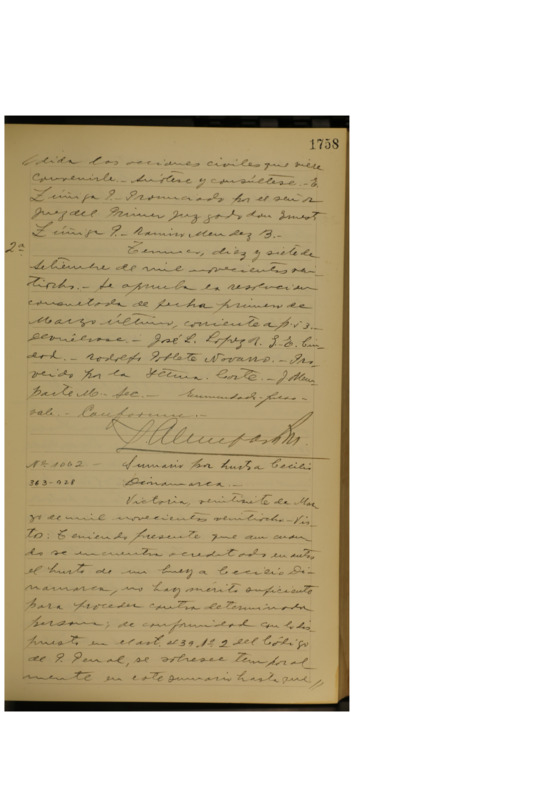 1758
dida las acciones civiles que viere
convenirle. - Anótese y consúltese. - E.
Zúñiga P. - Pronunciado por el señor
Juez del Primer Juzgado don Ernest
Zúñiga P. - Ramiro Mendez B. -
2a
Temuco, diez y siete de
Setiembre de mil novecientos vein
tiocho. - Se aprueba la resolucion
consultada de fecha primero de
Marzo último, corriente a f. 3. -
Devuélvase. - José L. Lopez
Rodolfo Poblete Navarro. - Pro
veido por la Iltma. Corte. - J. Mon
parte M. Sec. - Enmendado -
vale. - Conforme. -
No 1002 - Sumario por hurto a Cecilio
363-928 Dinamarca. -
Victoria, veintisiete de Mar
zo de mil novecientos veintiocho - Vis
to: Teniendo presente que aun cuan
do se encuentra acreditado en autos
el hurto de un buey a Cecilio Di
namarca, no hay mérito suficiente
para proceder contra determinada
persona; de conformidad con lo dis
puesto en el art. 439 No 2 del Código
de P. Penal, se sobresee temporal
mente en este sumario hasta que //